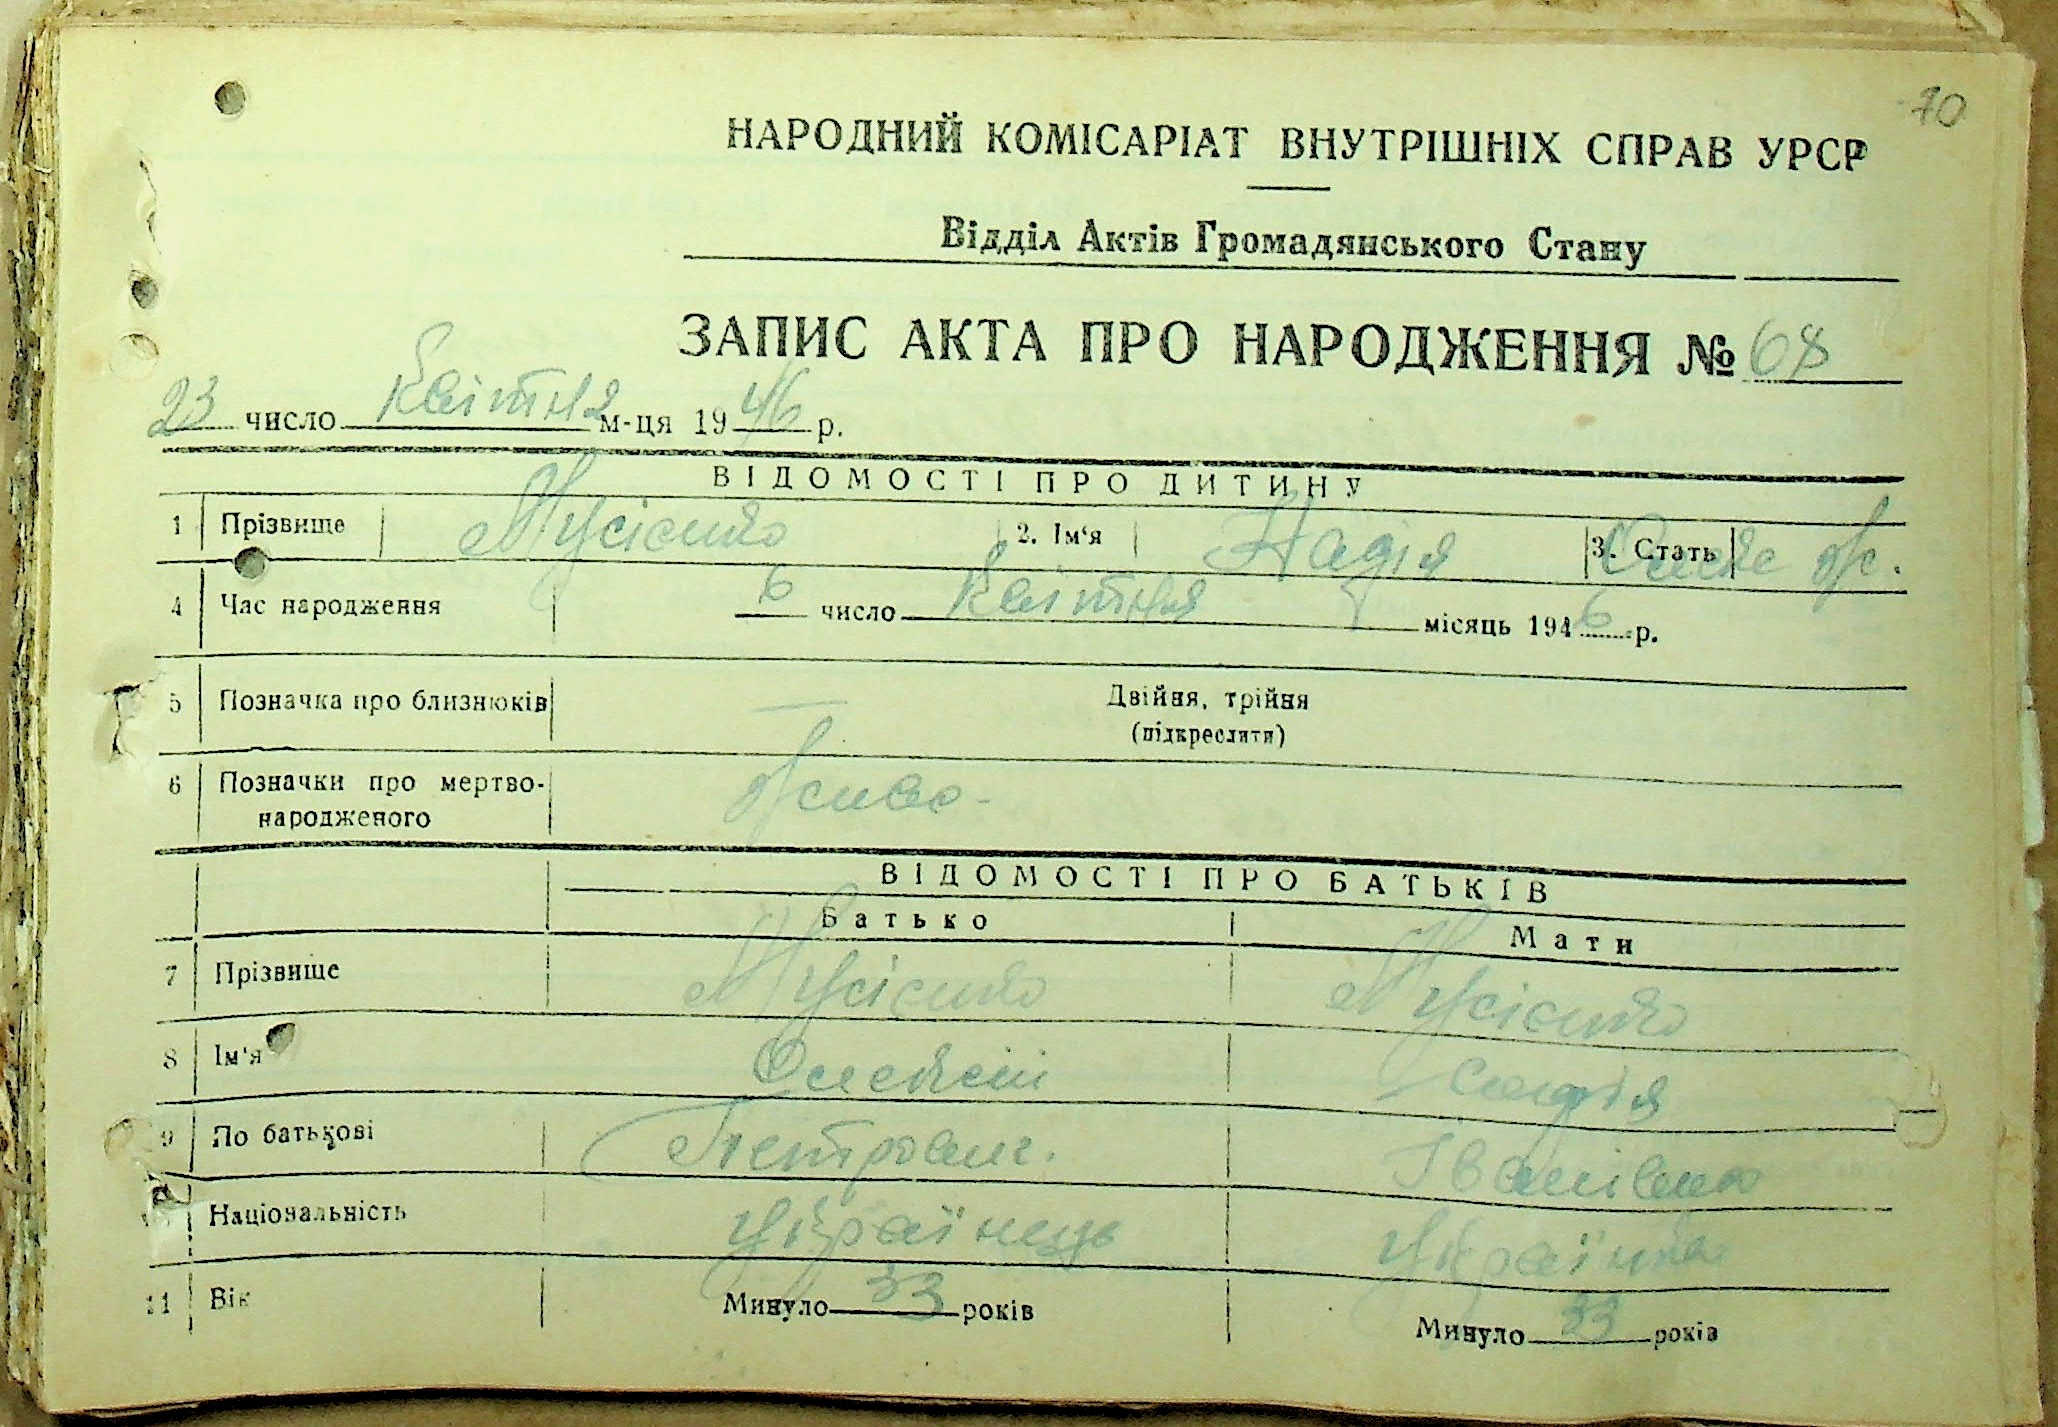 70
НАРОДНИЙ КОМІСАРІАТ ВНУТРІШНІХ СПРАВ УРСР
Відділ Актів Громадянського Стану
ЗАПИС АКТА ПРО НАРОДЖЕННЯ № 68
23 число Квітня м-ця 1946 р.
ВІДОМОСТІ ПРО ДИТИНУ
1 Прізвище Мусієнко 2. Ім'я Надія 3. Стать ж.
4 Час народження 6 число Квітня місяць 1946 р.
5 Позначка про близнюків — Двійня, трійня
(підкреслити)
6 Позначки про мертво-
народженого Живо-
ВІДОМОСТІ ПРО БАТЬКІВ
Батько Мати
7 Прізвище Мусієнко Мусієнко
8 Ім'я Олексій Софія
9 По батькові Петрович. Іванівна
Національність Українець Українка
11 Вік Минуло 33 років Минуло 33 років